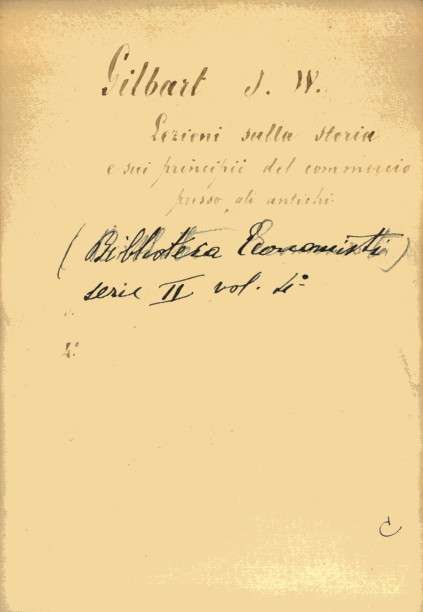 Gilbart J. W.
Lezioni sulla storia
e sui principii del commercio
presso gli antichi
(Biblioteca Economisti)
serie II vol. 4°
4°
C